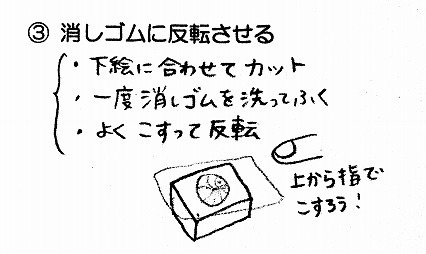 ③ 消しゴムに反転させる
・下絵に合わせてカット
・一度消しゴムを洗ってふく
・よくこすって反転
上から指で
こすろう!